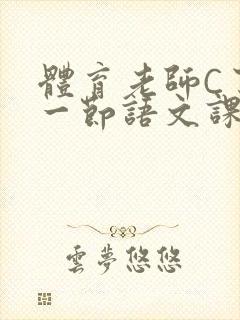 體育老師C
一節語文課
雲夢悠悠